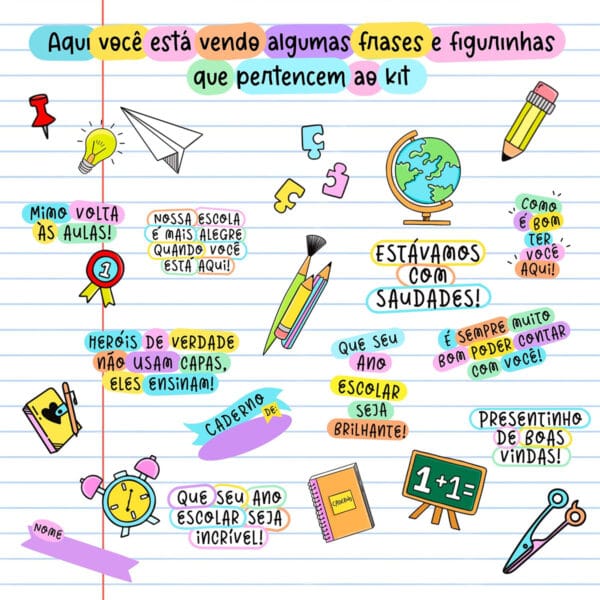 Aqui você está vendo algumas frases e figurinhas
que pertencem ao kit
MIMO VOLTA
ÀS AULAS!
NOSSA ESCOLA
É MAIS ALEGRE
QUANDO VOCÊ
ESTÁ AQUI!
COMO
É BOM
TER
VOCÊ
AQUI!
1
ESTÁVAMOS
COM
SAUDADES!
HERÓIS DE VERDADE
NÃO USAM CAPAS,
ELES ENSINAM!
QUE SEU
ANO
ESCOLAR
SEJA
BRILHANTE!
É SEMPRE MUITO
BOM PODER CONTAR
COM VOCÊ!
CADERNO DE
PRESENTINHO
DE BOAS
VINDAS!
QUE SEU ANO
ESCOLAR SEJA
INCRÍVEL!
CADERNO
1+1=
NOME